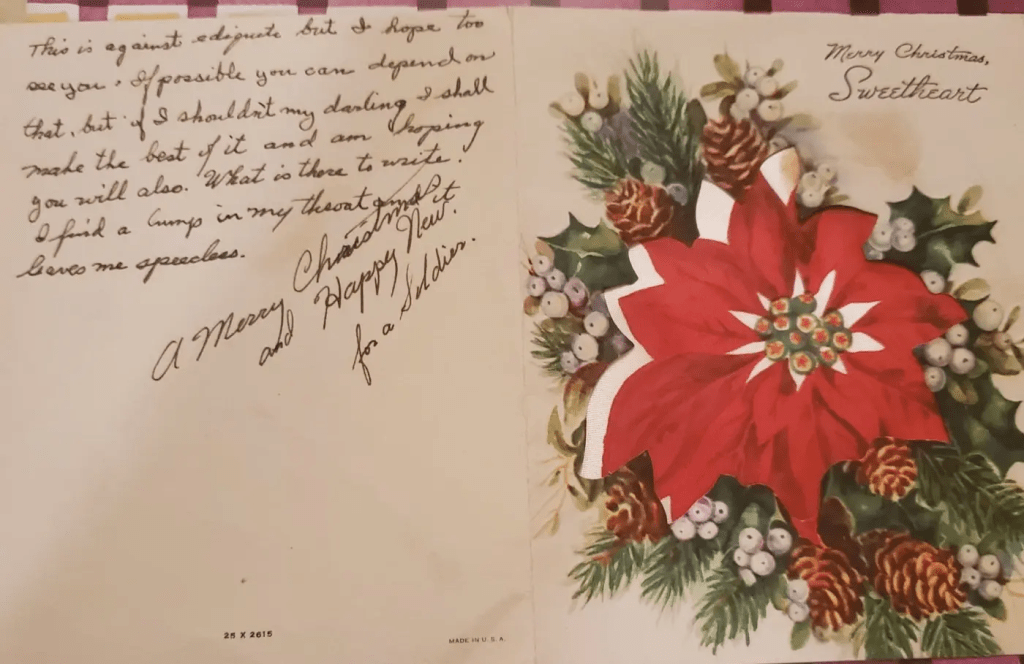 This is against ediquete but I hope too
see you. If possible you can depend on
that, but if I shouldn't my darling I shall
make the best of it and am hoping
you will also. What is there to write.
I find a lump in my throat and it
leaves me speecless.
A Merry Christmas
and Happy New.
for a Soldier.
25 X 2615
MADE IN U.S.A.
Merry Christmas,
Sweetheart